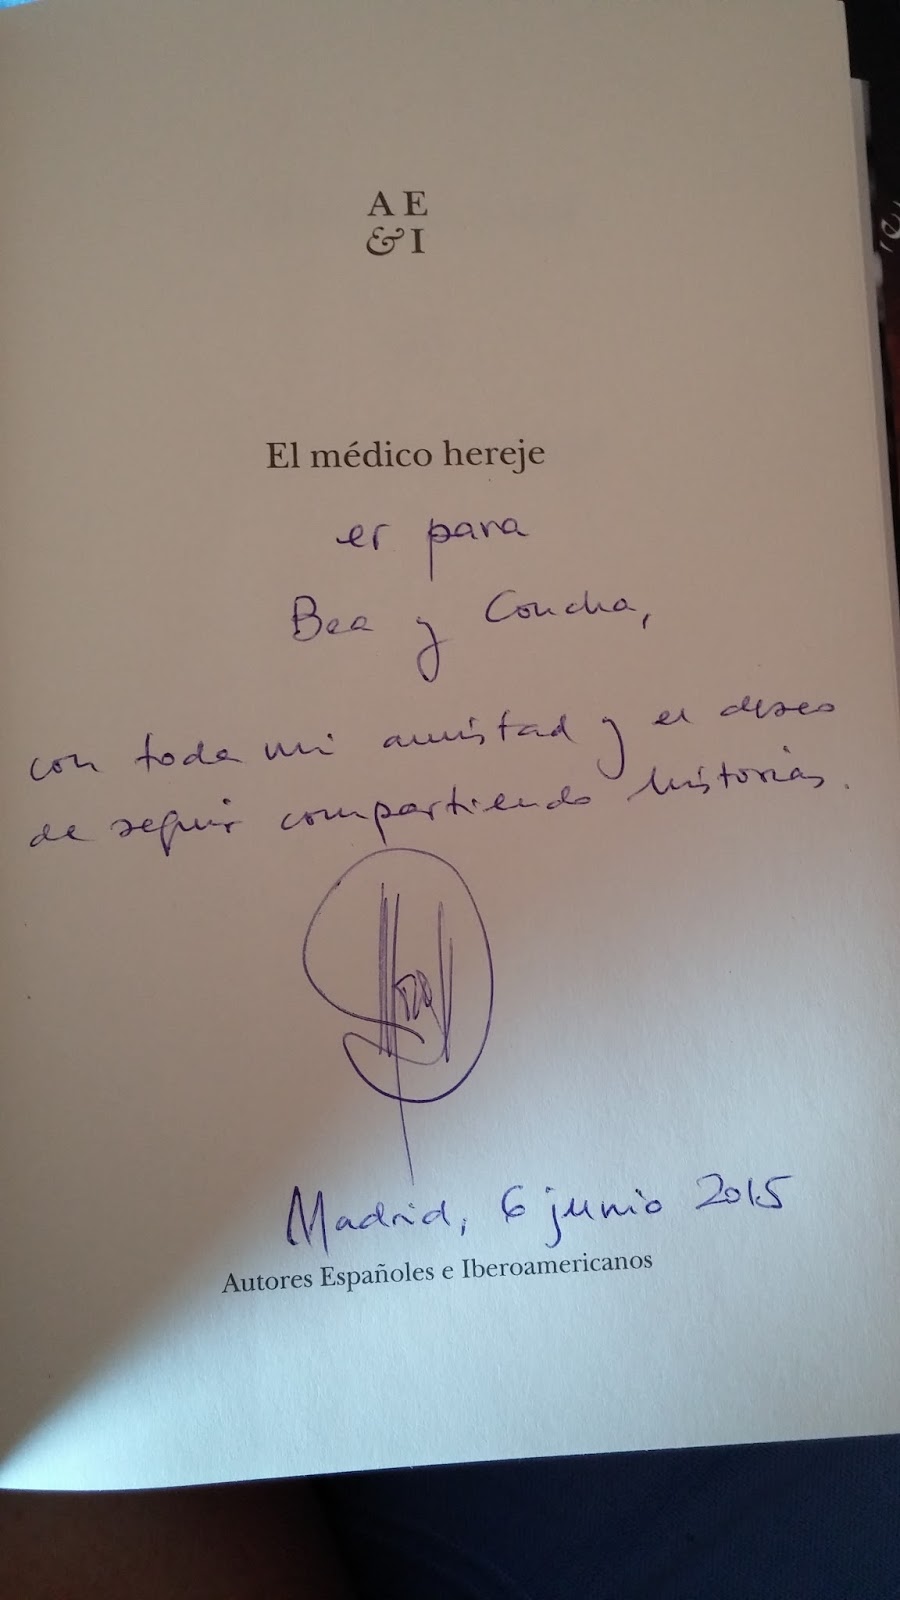 A E
& I
El médico hereje
es para
Bea y Concha,
con toda mi amistad y el deseo
de seguir compartiendo historias.
Madrid, 6 junio 2015
Autores Españoles e Iberoamericanos